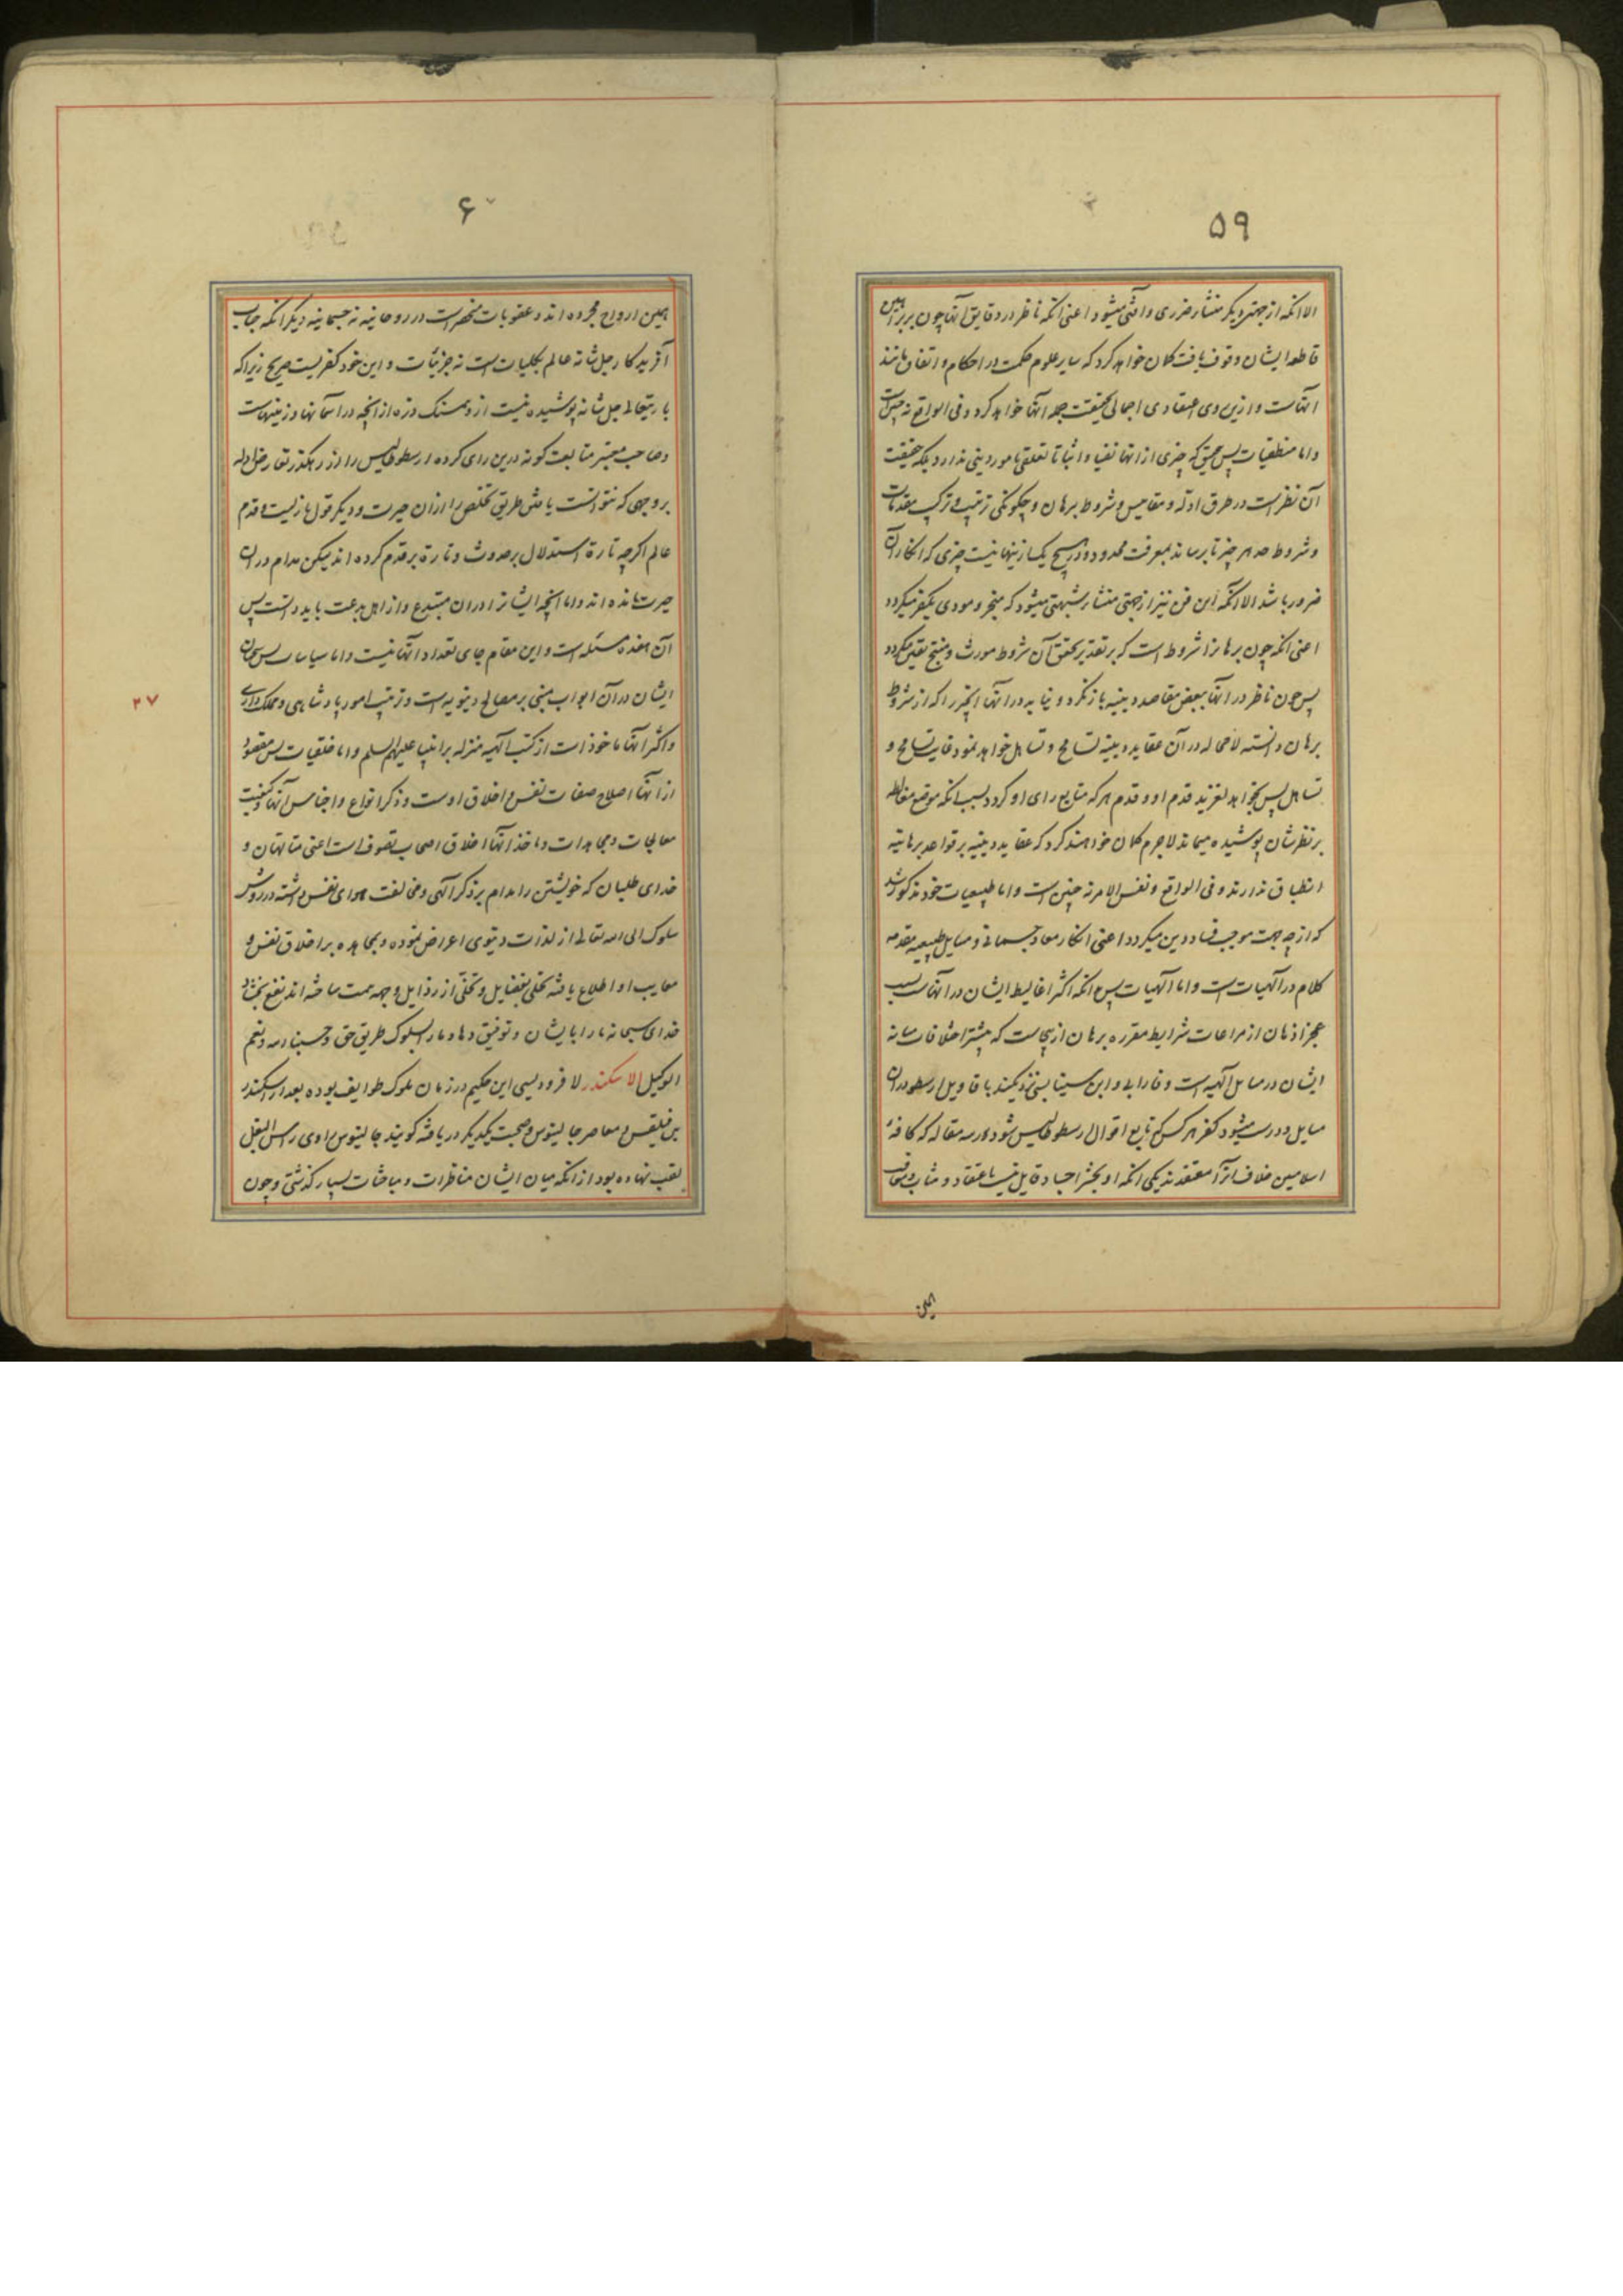 ۵۹
الا انکه از جهتی دیکر منشاء ضرری و افتی میشود اعنی انکه ناظر در دقایق انها چون بر براهین
قاطعه ایشان وقوف یافت کمان خواهد کرد که سایر علوم حکمت در احکام و اتقان مانند
انهاست و ازین روی اعتقادی اجمالی بحقیقت جمله انها خواهد کرد و فی الواقع نه چنین است
و اما منطقیات پس چیزی از انها نفیا و اثباتا تعلقی بامور دینی ندارد بلکه حقیقت
آن نظر است در طرق ادله و مقاییس و شروط برهان و چکونکی ترتیب و ترکیب مقدمات
و شروط حد هر چیز تا برساند بمعرفت محدود و در هیچ یک از ینها نیست چیزی که انکار آن
ضرور باشد الا انکه این فن نیز از جهتی منشاء شبهتی میشود که منجر و مودی بکفر میکردد
اعنی انکه چون برهانرا شروط است که بر تقدیر تحقق آن شروط مورث و منتج یقین میکردد
پس چون ناظر در انها ببعض مقاصد دینیه باز نکرد و نیابد در انها انچیز را که از شروط
برهان دانسته لامحاله در آن عقاید دینیه تسامح و تساهل خواهد نمود غایت تسامح و
تساهل پس بخواهد لغزید قدم او و قدم هر که متابع رای او کردد بسبب انکه موقع مغالطه
بر نظرشان پوشیده میماند لاجرم کمان خواهند کرد که عقاید دینیه بر قواعد برهانیه
انطباق ندارند و فی الواقع و نفس الامر نه چنین است و اما طبیعیات خود مذکور شد
که از چه جهت موجب فساد دین میکردد اعنی انکار معاد جسمانی و مسایل طبیعیه مقدمه
کلام در آلهیات است و اما آلهیات پس انکه اکثر اغالیط ایشان در انهاست بسبب
عجز اذهان از مراعات شرایط مقرره برهان ازینجاست که بیشتر اختلافات میانه
ایشان در مسایل آلهیه است و فارابی و ابن سینا بسی نزدیکند باقاویل ارسطو در آن
مسایل و درست میشود کفر هر کس که تابع اقوال ارسطوطالیس شود در سه مقاله که کافه
اسلامیین خلاف انرا معتقدند یکی انکه او بحشر اجساد قایل نیست باعتقاد و مثاب و معاقب
همین
۶۰
همین ارواح مجرده اند و عقوبات منحصر است در روحانیه نه جسمانیه دیکر انکه جناب
آفریدکار جل شانه عالم بکلیات است نه جزئیات و این خود کفریست صریح زیرا که
باریتعالی جل شانه پوشیده نیست ازو همسنک ذره از انچه در آسمانها و زمینهاست
و صاحب معتبر متابعت کونه درین رای کرده ارسطوطالیس را از رهکذر تعارض ادله
بر وجهی که نتوانست یافتن طریق تخلص را ازان حیرت و دیکر قول بازلیت و قدم
عالم اکرچه تارة استدلال بر حدوث و تارة بر قدم کرده اند لیکن مدام در آن
حیرت مانده اند و اما انچه ایشانرا دران مبتدع و از اهل بدعت باید دانست پس
آن هفده مسئله است و این مقام جای تعداد انها نیست و اما سیاسات پس سخنان
ایشان در آن ابواب مبنی بر مصالح دنیویه است و ترتیب امور پادشاهی و مملک داری
۲۷
و اکثر انها ماخوذ است از کتب آلهیه منزله بر انبیا علیهم السلم و اما خلقیات پس مقصود
از انها اصلاح صفات نفس و اخلاق اوست و ذکر انواع و اجناس آنها و کیفیت
معالجات و مجاهدات و ماخذ انها اخلاق اصحاب تصوف است اعنی متالهان و
خدای طلبان که خویشتن را مدام بر ذکر آلهی و مخالفت هوای نفس داشته در روش
سلوک الی الله تعالی از لذات دنیوی اعراض نموده و بمجاهده بر اخلاق نفس و
معایب او اطلاع یافته تحلی بفضایل و تخلی از رذایل وجهه همت ساخته اند نفع بخشاد
خدای سبحانه ما را بایشان و توفیق دهاد ما را بسلوک طریق حق و حسبنا الله و نعم
الوکیل الاسکندر لافرودیسی این حکیم در زمان ملوک طوایف بوده بعد از اسکندر
بن فیلقس و معاصر جالینوس و صحبت یکدیکر دریافته کویند جالینوس او را راس البغل
لقب نهاده بود از انکه میان ایشان مناظرات و مباحثات بسیار کذشتی و چون